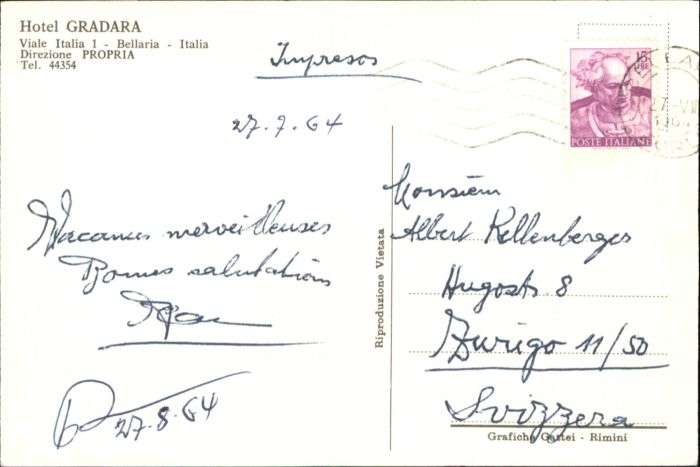 Hotel GRADARA
Viale Italia 1 - Bellaria - Italia
Direzione PROPRIA
Tel. 44354
Impresos
27.7.64
15
LIRE
POSTE ITALIANE
Vacances merveilleuses
Bonnes salutations
27.8.64
Riproduzione Vietata
Monsieur
Albert Kellenberger
Hugostr 8
Zurigo 11/50
Svizzera
Grafiche Gattei - Rimini